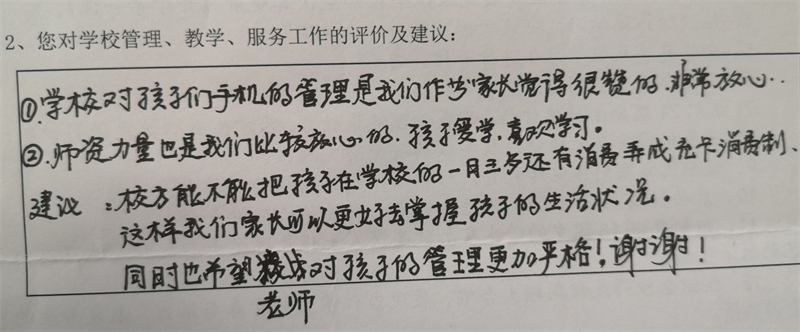 2、您对学校管理、教学、服务工作的评价及建议：
①.学校对孩子们手机的管理是我们作为家长觉得很赞的.非常放心..
②.师资力量也是我们比较放心的.孩子爱学,喜欢学习。
建议：校方能不能把孩子在学校的一日三歺还有消费弄成充卡消费制、
这样我们家长可以更好去掌握孩子的生活状况。
同时也希望对孩子的管理更加严格！谢谢！
老师